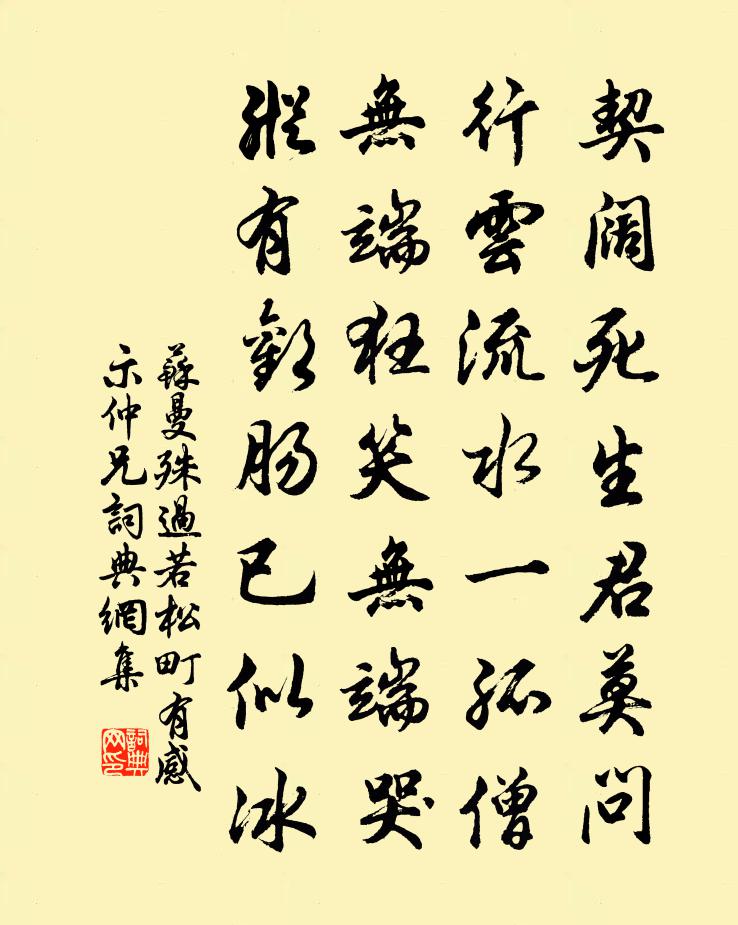 契阔死生君莫問
行雲流水一孤僧
無端狂笑無端哭
縱有歡腸已似冰
蘇曼殊過若松町有感
示仲兄詞典網集
詞典
网印